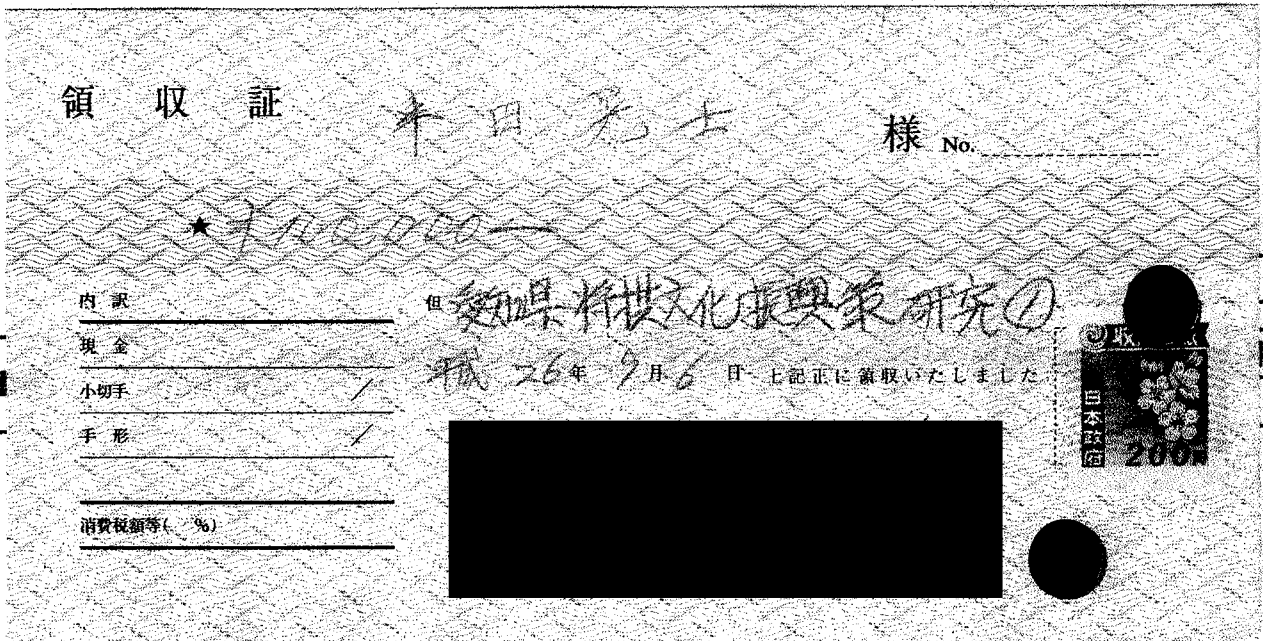 領 収 証 半田晃士 様 No.
★ ¥100,000―
内 訳
但 愛知県将棋文化振興策研究①
現 金
平成 26年 9月 6日 上記正に領収いたしました
小切手 /
手 形 /
消費税額等( %)
収
日本政府
200円